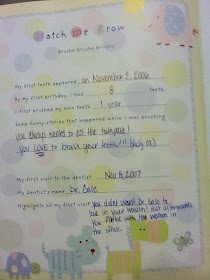 Watch me Grow
Brusha brusha brusha!
My first tooth appeared on November 2, 2006
By my first birthday, I had 8 teeth.
I first brushed my own teeth 1 year.
Some funny stories that happened while I was brushing
you always wanted to eat the toothpaste!
You LOVE to brush your teeth!!!
My first visit to the dentist Nov 6, 2007
My dentist's name Dr. Gale
Highlights of my first visit you didnt want Dr. Gale to
look in your mouth, but afterwards
you flirted with the women in
the office.